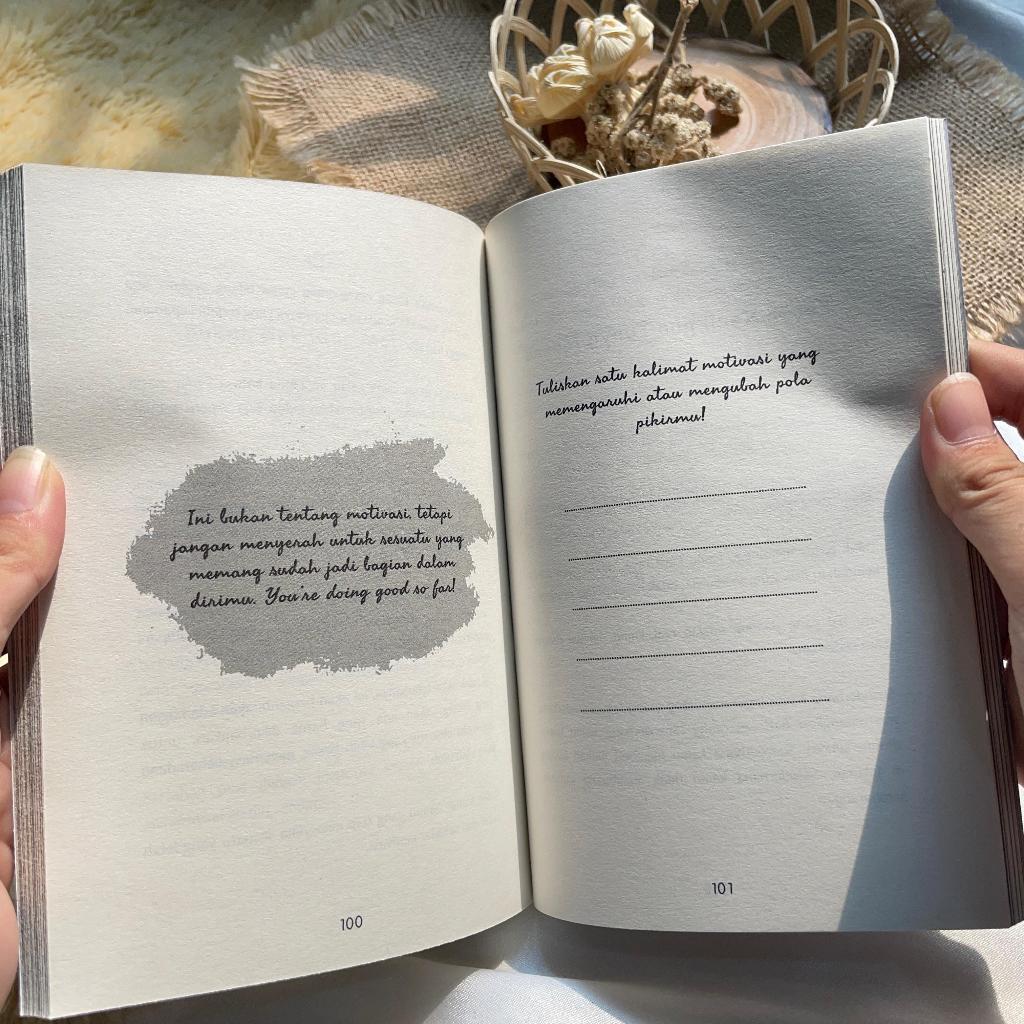 Ini bukan tentang motivasi, tetapi
jangan menyerah untuk sesuatu yang
memang sudah jadi bagian dalam
dirimu. You're doing good so far!
100
Tuliskan satu kalimat motivasi yang
memengaruhi atau mengubah pola
pikirmu!
101